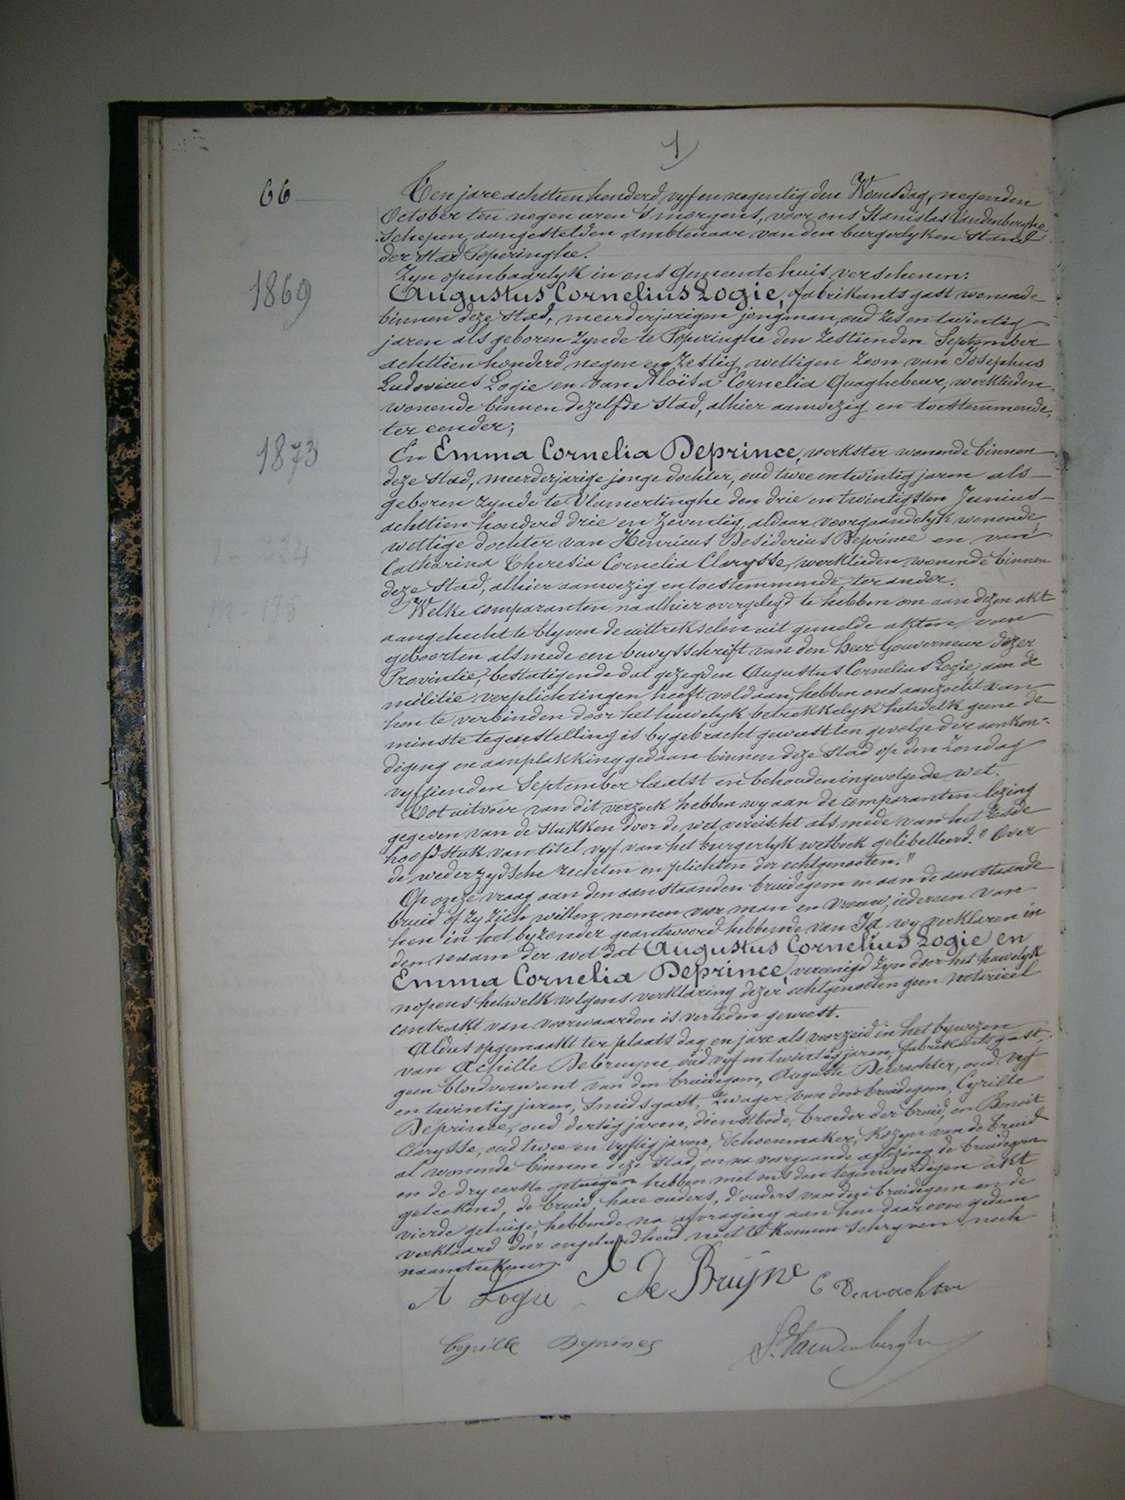 1
66
Ten jare achttien honderd vyf en negentig den Woensdag, negenden
October ten negen uren 's morgens, voor ons Stanislas Vandenberghe
Schepen, aangestelden ambtenaar van den burgerlyken Stand
der stad Poperinghe.
Zyn openbaarlyk in ons Gemeentehuis verschenen:
1869
Augustus Cornelius Logie, fabrikantsgast wonende
binnen deze stad, meerderjarigen jongman, oud zes en twintig
jaren als geboren zynde te Poperinghe den zestienden September
achttien honderd negen en zestig, wettigen zoon van Josephus
Ludovicus Logie en van Aloïsa Cornelia Quaghebeur, werklieden
wonende binnen dezelfde stad, alhier aanwezig en toestemmende
ter eender;
1873
En Emma Cornelia Deprince, werkster wonende binnen
deze stad, meerderjarige jonge dochter, oud twee en twintig jaren als
geboren zynde te Vlamertinghe den drie en twintigsten Junius
achttien honderd drie en zeventig, aldaar voorgaandelyk wonende,
wettige dochter van Henricus Desiderius Deprince en van
Catharina Theresia Cornelia Clarysse, werklieden wonende binnen
deze stad, alhier aanwezig en toestemmende ter ander.
Welke comparanten na alhier overgelegd te hebben om aan dezen akt
aangehecht te blyven de uittrekselen uit gemelde akten van
geboorten alsmede een bewysschrift van den heer Gouverneur dezer
Provintie, bestatigende dat gezegden Augustus Cornelius Logie, aan de
militie verplichtingen heeft voldaan, hebben ons aanzocht van
hen te verbinden door het huwelyk betrekkelyk hetwelk geene de
minste tegenstelling is bygebracht geweest ten gevolge der aankon-
diging en aanplakking gedaan binnen deze stad op den zondag
vyftienden September laatst en behouden ingevolge de wet.
Tot uitvoer van dit verzoek hebben wy aan de comparanten lezing
gegeven van de stukken door de wet vereischt als mede van het zesde
hoofdstuk van titel vyf van het burgerlyk wetboek gelibelleerd: "Over
de wederzydsche rechten en plichten der echtgenooten."
Op onze vraag aan den aanstaanden bruidegom en aan de aanstaande
bruid of zy zich willen nemen voor man en vrouw, iedereen van
hen in het byzonder geantwoord hebbende van Ja wy verklaren in
den naam der wet dat Augustus Cornelius Logie en
Emma Cornelia Deprince, vereenigd zyn door het huwelyk
nopens hetwelk volgens verklaring dezer echtgenooten geen notarieel
contrakt van voorwaarden is verleden geweest.
Aldus opgemaakt ter plaats dag en jare als voorzeid in het bywezen
van Achille Debruyne, oud vyf en twintig jaren, fabrikantsgast,
geen bloedverwant van den bruidegom, Auguste Dewachter, oud vyf
en twintig jaren, smidsgast, zwager van den bruidegom, Cyrille
Deprince, oud dertig jaren, dienstbode, broeder der bruid, en Benoit
Clarysse, oud twee en vyftig jaren, schoenmaker, kozyn van de bruid
al wonende binnen deze stad, en na voorgaande aflezing de bruidegom
en de dry eerste getuigen hebben met ons den tegenwoordigen akt
geteekend, de bruid, hare ouders, d'ouders van deze bruidegom en de
vierde getuige, hebbende na afvraging aan hen daarover gedaan
verklaard door ongeleerdheid niet te kunnen schryven noch
naamteekenen.
A Logie A De Bruÿne Dewachter
Cyrille Deprince S. Vandenberghe